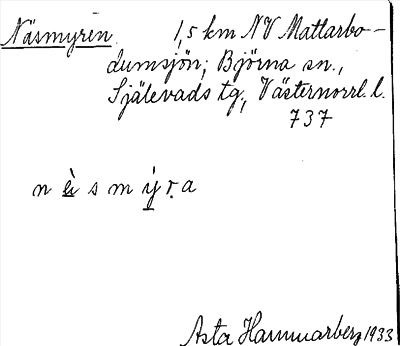 Näsmyren 1,5 km NV Mattarbo-
dumsjön; Björna sn.,
Själevads tg., Västernorrl. l.
737
n è s m ý r a
Asta Hammarberg 1933